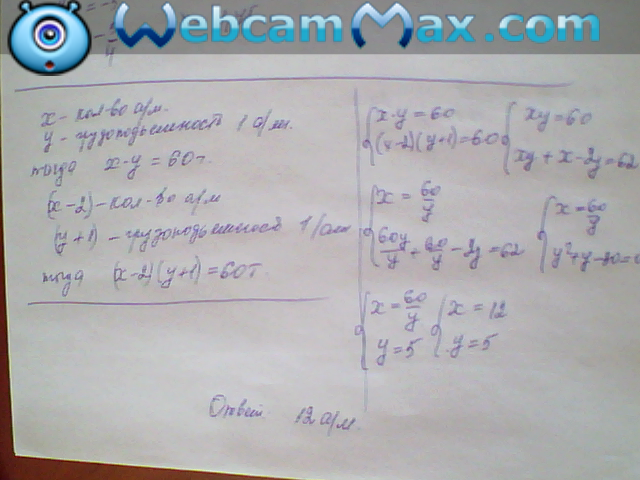 WebcamMax.com
x - кол-во а/м.
y - грузоподъемность 1 а/м.
тогда x·y = 60т.
(x-2) - кол-во а/м
(y+1) - грузоподъемность 1 а/м
тогда (x-2)(y+1) = 60т.
x·y = 60
(x-2)(y+1) = 60
xy = 60
xy + x - 2y = 62
x = 60/y
60y/y + 60/y - 2y = 62
x = 60/y
y² + y - 30 = 0
x = 60/y
y = 5
x = 12
y = 5
Ответ: 12 а/м.